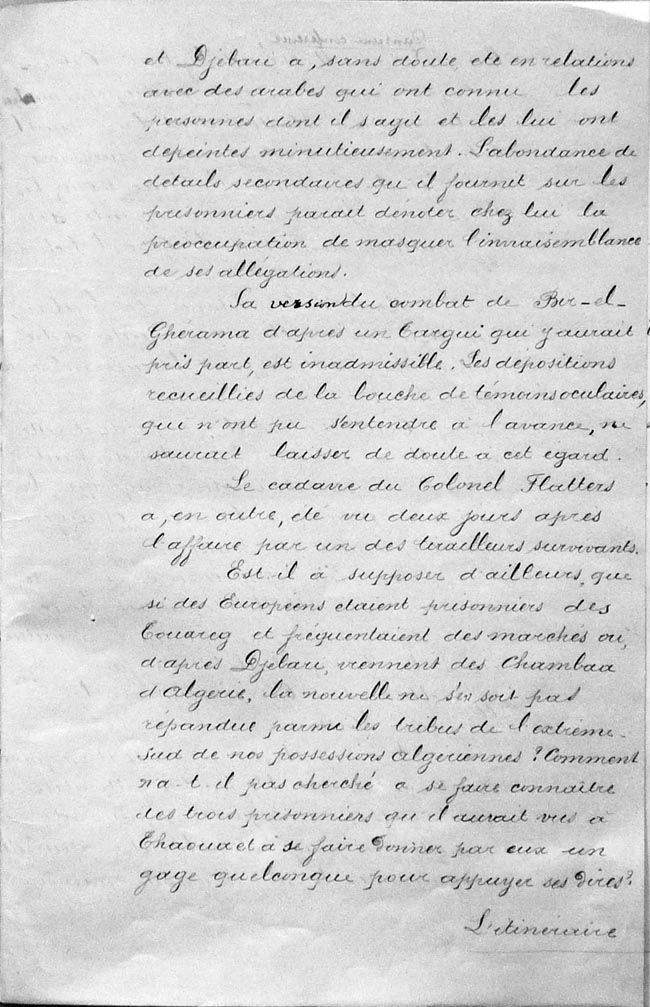 et Djebari a, sans doute, été en relations
avec des arabes qui ont connu les
personnes dont il s'agit et les lui ont
dépeintes minutieusement. L'abondance de
détails secondaires qu'il fournit sur les
prisonniers parait dénoter chez lui la
préoccupation de masquer l'invraisemblance
de ses allégations.
Sa version du combat de Bir-el-
Gherama d'après un Targui qui y aurait
pris part, est inadmissible. Les dépositions
recueillies de la bouche de témoins oculaires,
qui n'ont pu s'entendre à l'avance, ne
saurait laisser de doute à cet egard.
Le cadavre du Colonel Flatters
a, en outre, été vu deux jours après
l'affaire par un des tirailleurs survivants.
Est il à supposer d'ailleurs, que
si des Européens étaient prisonniers des
Touareg et fréquentaient des marchés où,
d'après Djebari, viennent des Chambaa
d'Algérie, la nouvelle ne s'en soit pas
répandue parmi les tribus de l'extrême-
Sud de nos possessions algériennes ? Comment
n'a-t-il pas cherché à se faire connaître
des trois prisonniers qu'il aurait vus à
Thaoua et à se faire donner par eux un
gage quelconque pour appuyer ses dires ?
L'itinéraire